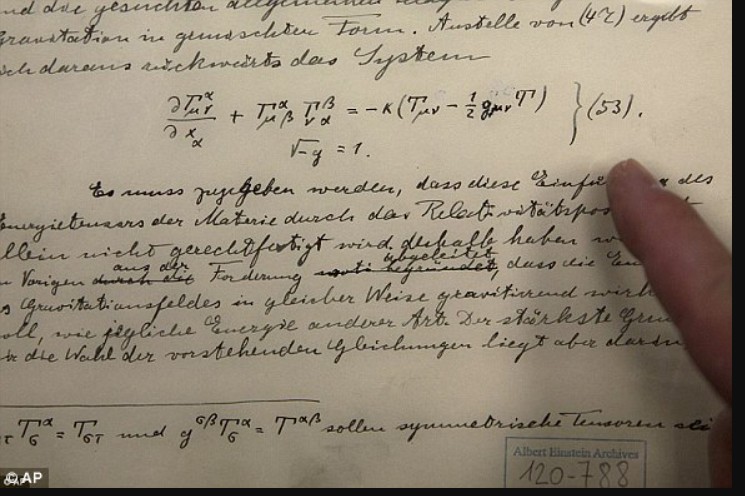 und die gesuchten allgemeinen
Gravitation in gemischten Form. Anstelle von (47) ergibt
sich daraus rückwärts das System
∂Γ^α_μν / ∂x_α + Γ^α_μβ Γ^β_να = −κ(T_μν − 1/2 g_μν T) } (53).
√−g = 1.
Es muss zugegeben werden, dass diese Einfü des
Energietensors der Materie durch das Relativitätspos
allein nicht gerechtfertigt wird deshalb haben w
Vorigen durch die aus der Forderung abgeleitet, dass die En
s Gravitationsfeldes in gleicher Weise gravitierend wirk
soll, wie jegliche Energie anderer Art. Der stärkste Gru
die Wahl der vorstehenden Gleichungen liegt aber darin
T^α_σ = T_στ und g^σβ T^α_σ = T^αβ sollen symmetrische Tensoren sei
Albert Einstein Archives
120-788
© AP